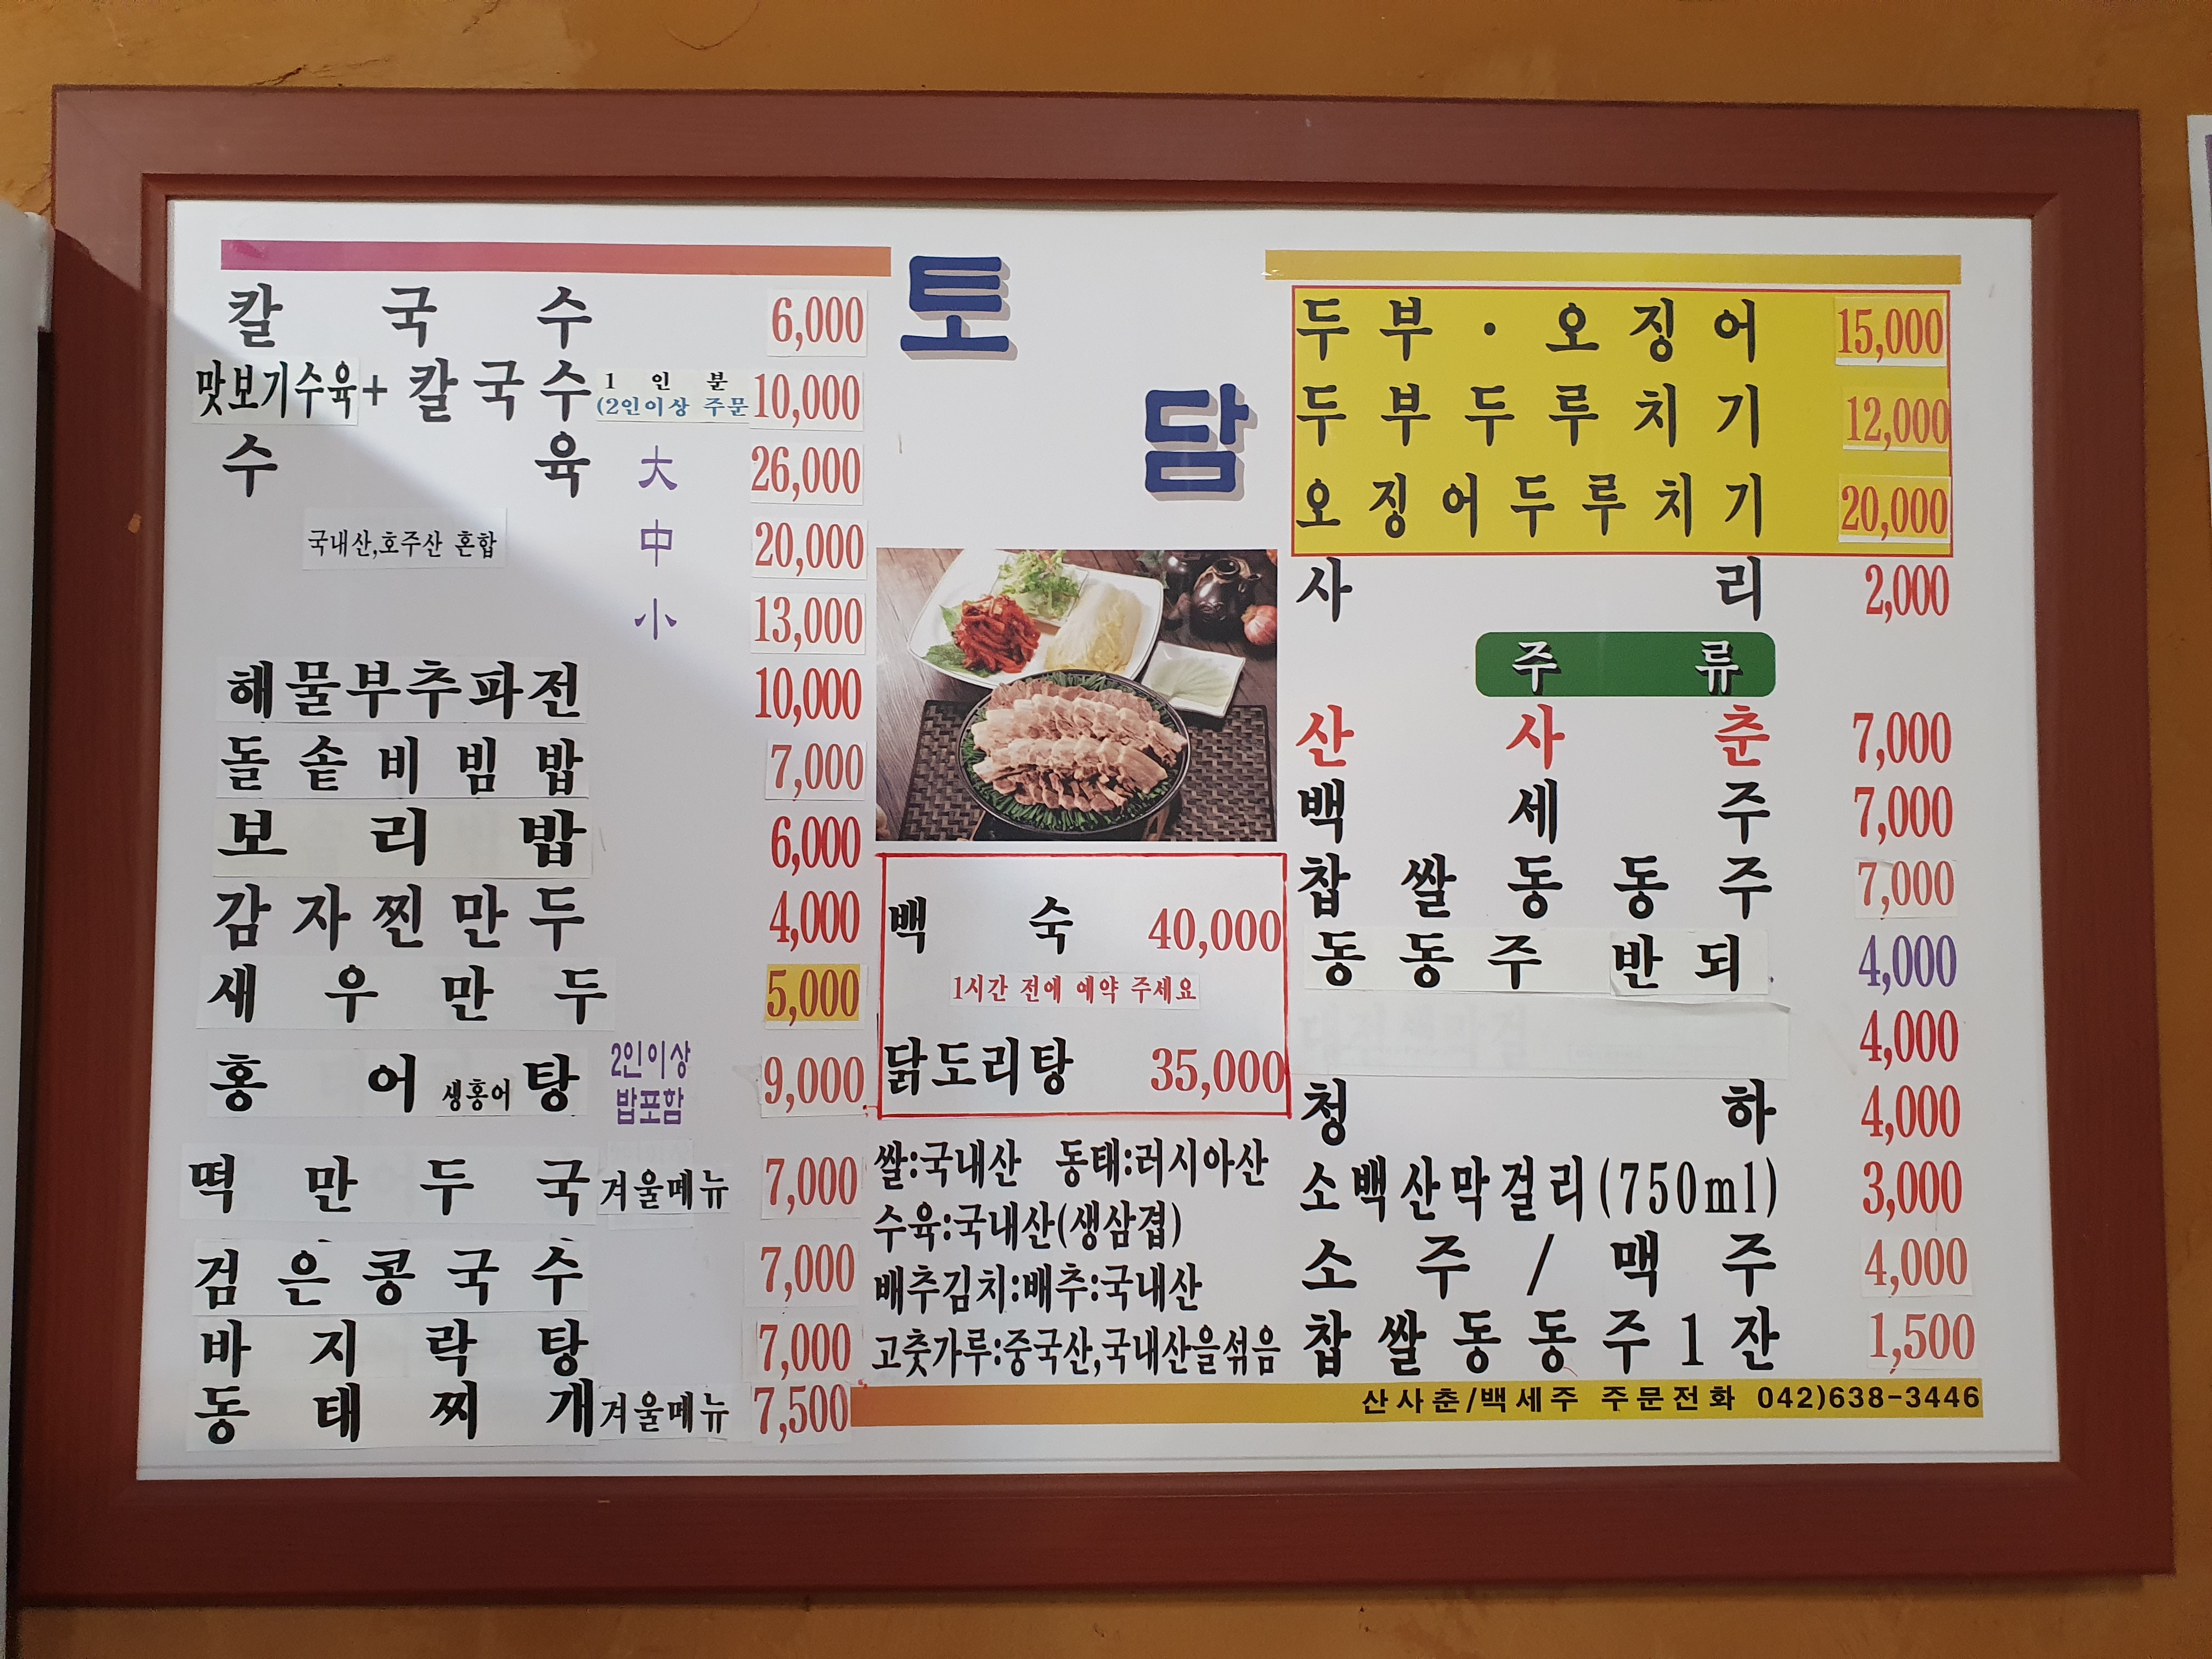 토담
칼국수 6,000
맛보기수육+칼국수 1인분 (2인이상 주문 10,000
수육 大 26,000
국내산,호주산 혼합 中 20,000
小 13,000
해물부추파전 10,000
돌솥비빔밥 7,000
보리밥 6,000
감자찐만두 4,000
새우만두 5,000
홍어 생홍어 탕 2인이상 밥포함 9,000
떡만두국 겨울메뉴 7,000
검은콩국수 7,000
바지락탕 7,000
동태찌개 겨울메뉴 7,500
백숙 40,000
1시간 전에 예약 주세요
닭도리탕 35,000
쌀:국내산 동태:러시아산
수육:국내산(생삼겹)
배추김치:배추:국내산
고춧가루:중국산,국내산을섞음
두부·오징어 15,000
두부두루치기 12,000
오징어두루치기 20,000
사리 2,000
주류
산사춘 7,000
백세주 7,000
찹쌀동동주 7,000
동동주 반되 4,000
4,000
청하 4,000
소백산막걸리(750ml) 3,000
소주/맥주 4,000
찹쌀동동주1잔 1,500
산사춘/백세주 주문전화 042)638-3446